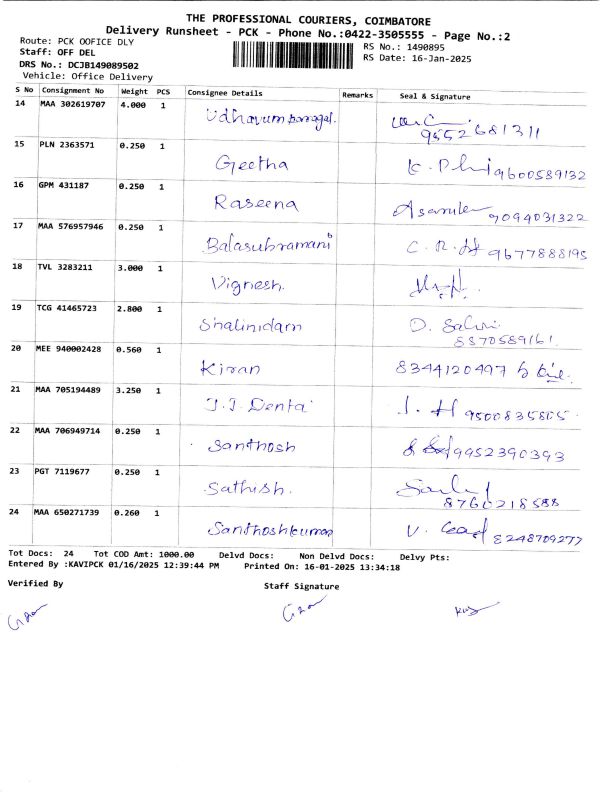 THE PROFESSIONAL COURIERS, COIMBATORE
Delivery Runsheet - PCK - Phone No.:0422-3505555 - Page No.:2
Route: PCK OOFICE DLY
RS No.: 1490895
Staff: OFF DEL
RS Date: 16-Jan-2025
DRS No.: DCJB149089502
Vehicle: Office Delivery
S No Consignment No Weight PCS Consignee Details Remarks Seal & Signature
14 MAA 302619707 4.000 1
9552681311
15 PLN 2363571 0.250 1 Geetha 9600589132
16 GPM 431187 0.250 1 Raseena 9094031322
17 MAA 576957946 0.250 1 Balasubramani C. R. 9677888195
18 TVL 3283211 3.000 1 Vignesh.
19 TCG 41465723 2.800 1 Shalinidam D.
8370589161.
20 MEE 940002428 0.560 1 Kiran 8344120497
21 MAA 705194489 3.250 1 J.J. Dental 9500835805
22 MAA 706949714 0.250 1 Santhosh 9952390393
23 PGT 7119677 0.250 1 Sathish.
8760218588
24 MAA 650271739 0.260 1 Santhoshkumar V. 8248709277
Tot Docs: 24 Tot COD Amt: 1000.00 Delvd Docs: Non Delvd Docs: Delvy Pts:
Entered By :KAVIPCK 01/16/2025 12:39:44 PM Printed On: 16-01-2025 13:34:18
Verified By Staff Signature